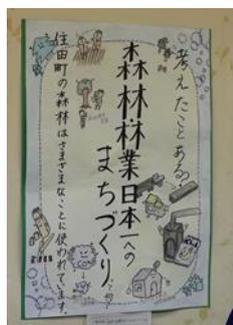 考えたことある?
森林・林業日本一への
まちづくり
住田町の森林はさまざまなことに使われています。